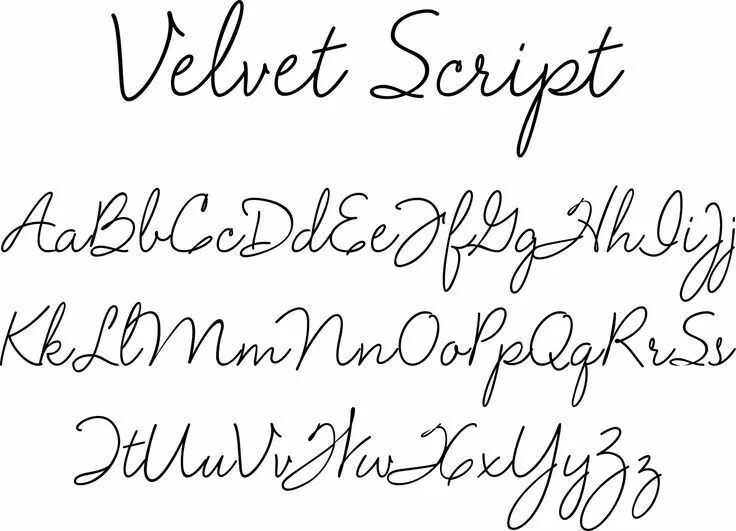 Velvet Script
AaBbCcDdEeFfGgHhIiJj
KkLlMmNnOoPpQqRrSs
TtUuVvWwXxYyZz